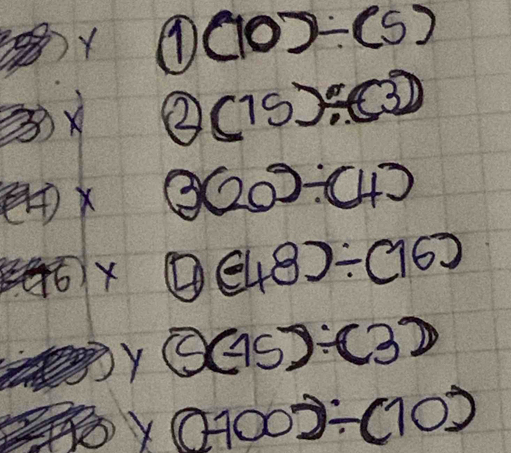 Y ①(10)÷(5)
X ②(15)÷(3)
(4) X ③(20)÷(4)
X ④(-48)÷(16)
Y ⑤(-15)÷(3)
Y (-100)÷(10)